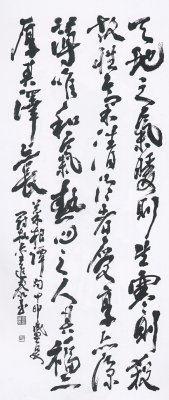 天地之氣暖則生寒則殺
故性氣清冷者受享亦涼
薄唯和氣熱心之人其福亦
厚其澤亦長
菜根譚句甲申盛夏